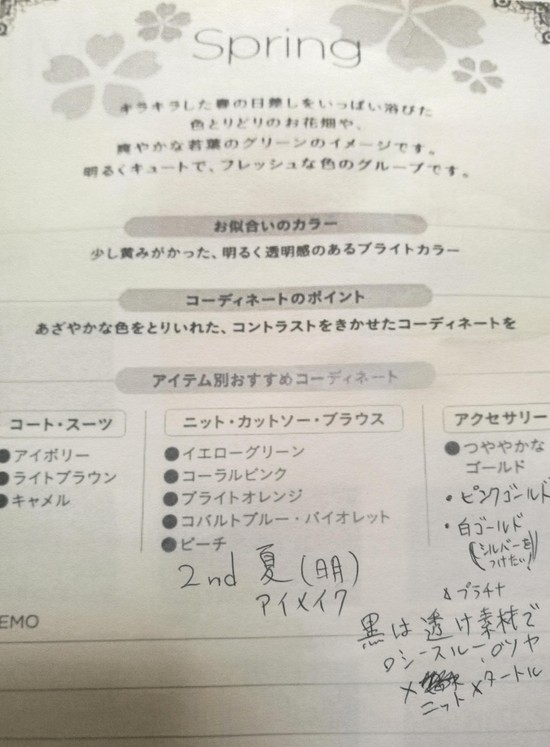 Spring
キラキラした春の日差しをいっぱい浴びた
色とりどりのお花畑や、
爽やかな若葉のグリーンのイメージです。
明るくキュートで、フレッシュな色のグループです。
お似合いのカラー
少し黄みがかった、明るく透明感のあるブライトカラー
コーディネートのポイント
あざやかな色をとりいれた、コントラストをきかせたコーディネートを
アイテム別おすすめコーディネート
コート・スーツ
●アイボリー
●ライトブラウン
●キャメル
ニット・カットソー・ブラウス
●イエローグリーン
●コーラルピンク
●ブライトオレンジ
●コバルトブルー・バイオレット
●ピーチ
アクセサリー
●つややかな
ゴールド
・ピンクゴールド
・白ゴールド
(シルバーを
つけたい)
プラチナ
2nd 夏(明)
アイメイク
EMO
黒は透け素材で
シースルー、ツヤ
×ニット ×タートル